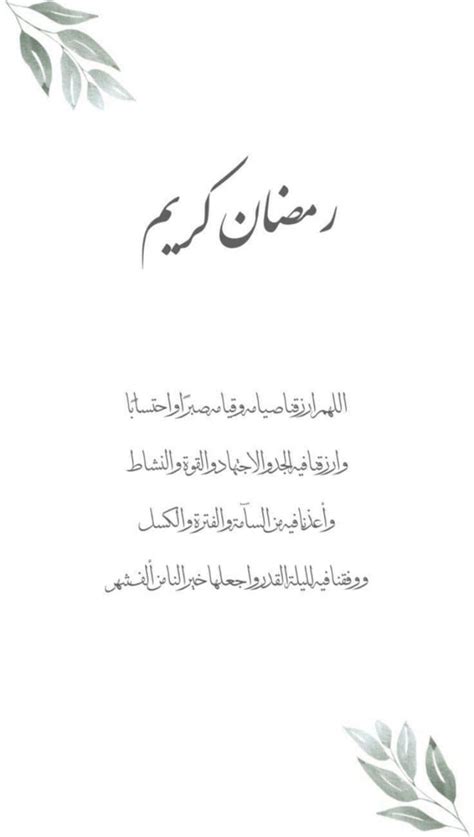 رمضان كريم
اللهم ارزقنا صيامه وقيامه صبرًا واحتسابًا
وارزقنا فيه الجد والاجتهاد والقوة والنشاط
وأعذنا فيه من السآمة والفترة والكسل
ووفقنا فيه لليلة القدر واجعلها خير النا من ألف شهر